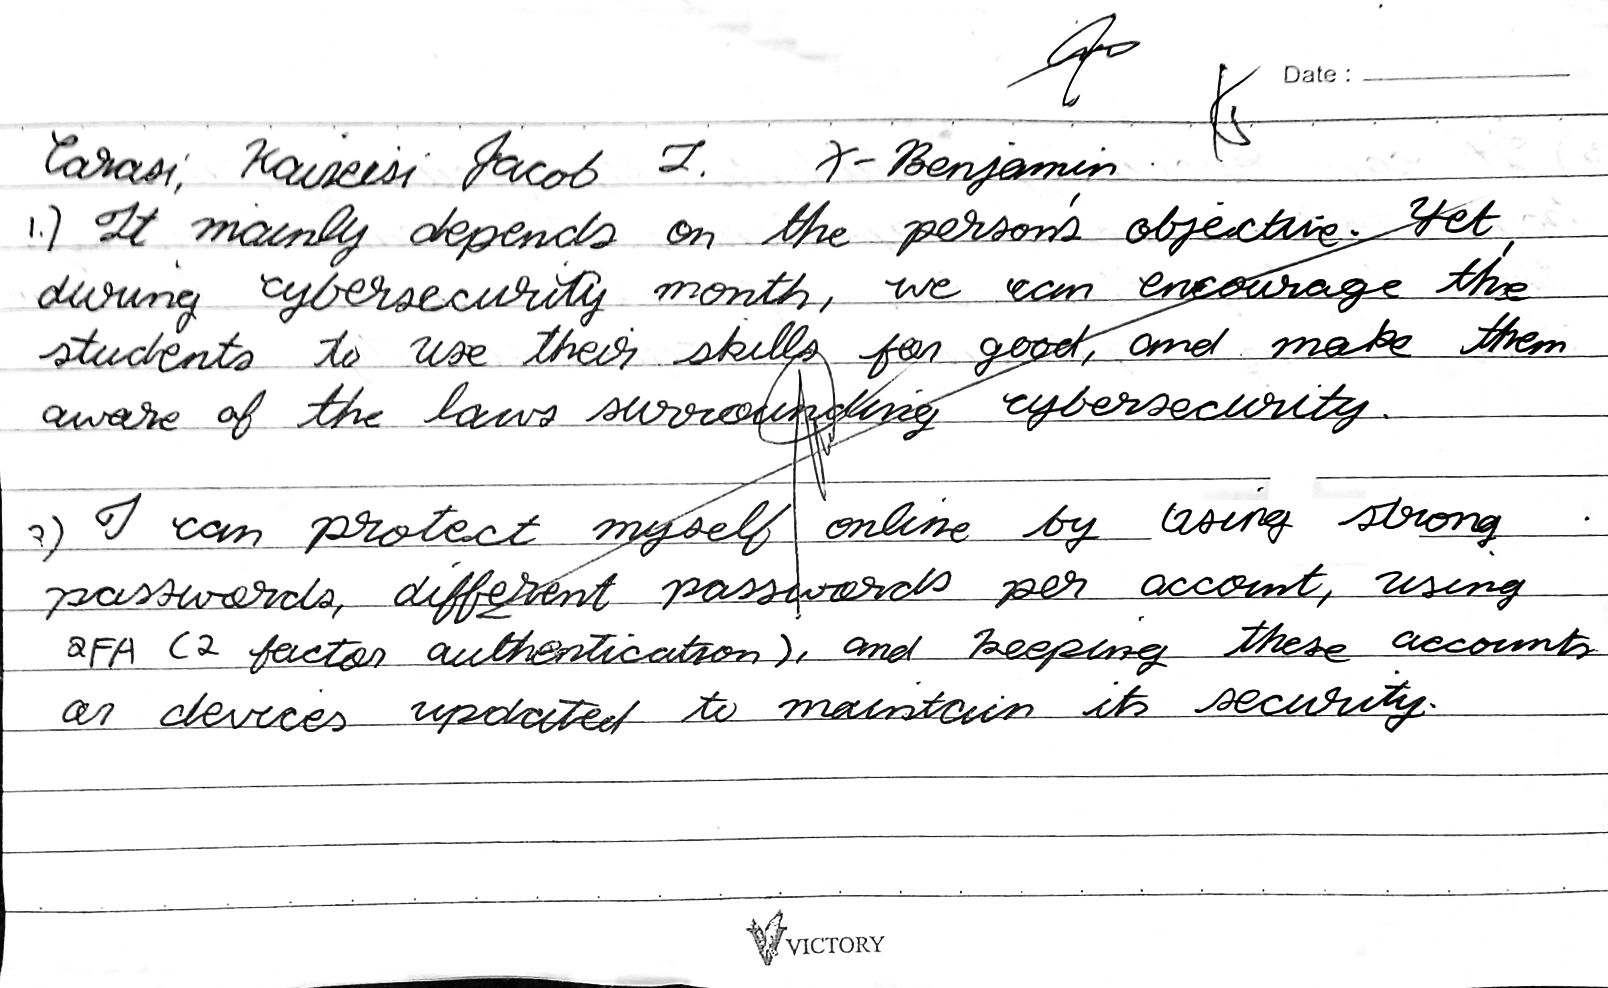 Date :
Carasi, Jacob I. X- Benjamin
1.) It mainly depends on the person's objective. Yet,
during cybersecurity month, we can encourage the
students to use their skills for good, and make them
aware of the laws surrounding cybersecurity.
2) I can protect myself online by using strong
passwords, different passwords per account, using
2FA (2 factor authentication), and keeping these accounts
or devices updated to maintain its security.
VICTORY